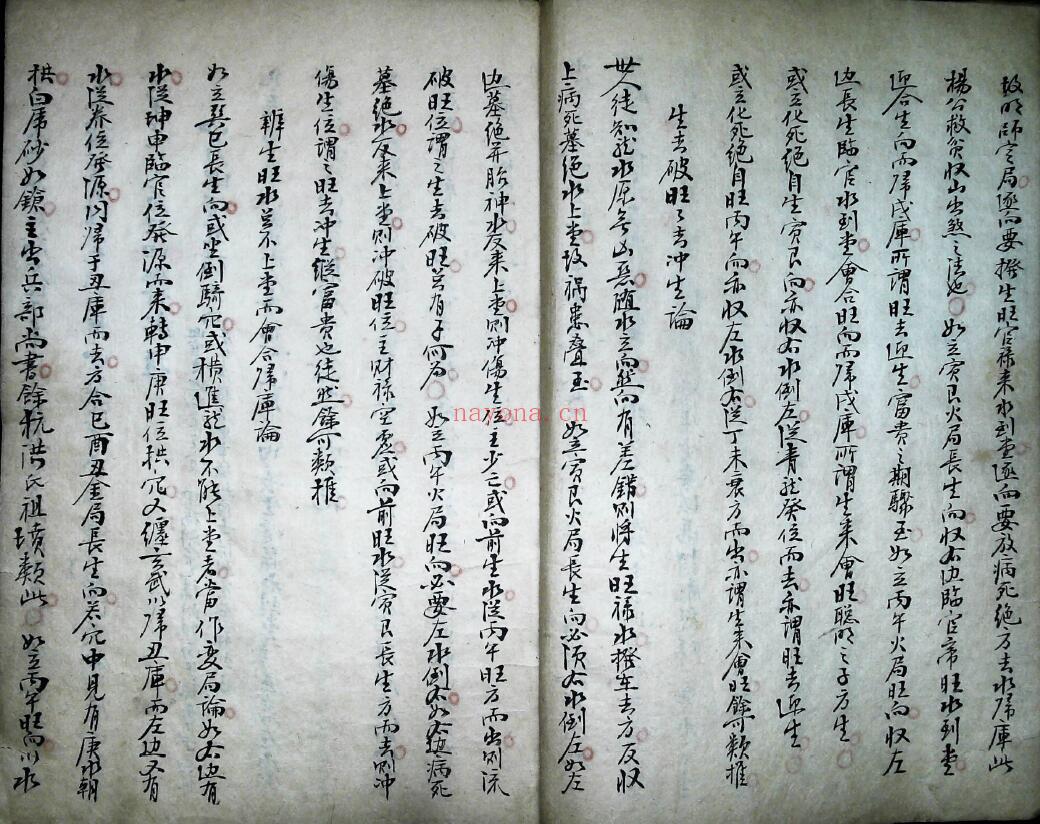 故明師定局逐向要撥生旺官祿来水到堂逐向要放病死絕方去水歸庫此
楊公救貧收山出煞之法也 如立寅艮火局長生向收右边臨官帝旺水到堂
迎合生向而歸戌庫所謂旺去迎生富貴之期驟至如立丙午火局旺向收左
边長生臨官水到堂會合旺向而歸戌庫所謂生来會旺聪明之子方生
或立化死絕自生寅艮向亦收右水倒左從青龍癸位而去亦謂旺去迎生
或立化死絕自旺丙午向亦收左水倒右從丁未衰方而出亦謂生来會旺餘可類推
生去破旺旺去冲生論
世人徒知龍水原無凶惡随水立向然向有差錯則将生旺祿水撥在去方反収
上病死墓絕水上堂故禍患叠至 如立寅艮火局長生向必须右水倒左如左
边墓絕并胎神水反来上堂則冲傷生位主少亡或向前生水從丙午旺方而出則流
破旺位謂之生去破旺總有子何为 如立丙午火局旺向必要左水倒右如右边病死
墓絕水反来上堂則冲破旺位主财祿空虚或向前旺水從寅艮長生方而去則冲
傷生位謂之旺去冲生縱富貴也徒然餘可類推
辨生旺水總不上堂而會合歸庫論
如立巽巳長生向或坐倒騎穴或横進龍水不能上堂者當作变局論如右边有
水從坤申臨官位發源而来轉申庚旺位拱穴又纏玄武以歸丑庫而左边又有
水從养位發源闪歸于丑庫而去方合巳酉丑金局長生向若穴中見有庚水朝
拱白虎砂如鎗主出兵部尚書餘杭洪氏祖墳類此 如立丙午旺向以水
nayona.cn